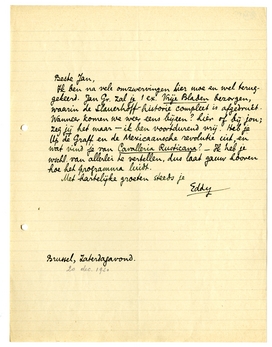 Beste Jan,
Ik ben na vele omzwervingen hier moe en wel terug-
gekeerd. Jan Gr. zal je 1 ex. Vrije Bladen bezorgen,
waarin de Slauerhoff-historie compleet is afgedrukt.
Wanneer komen we weer eens bijeen? hier of bij jou;
zeg jij het maar — ik ben voortdurend vrij. Heb je
Up de Graff en de Mexicaansche revolutie uit, en
wat vind je van Cavalleria Rusticana? — Ik heb je
nogal van allerlei te vertellen, dus laat gauw hooren
hoe het programma luidt.
Met hartelijke groeten steeds je
Eddy
Brussel, Zaterdagavond.
20 dec.